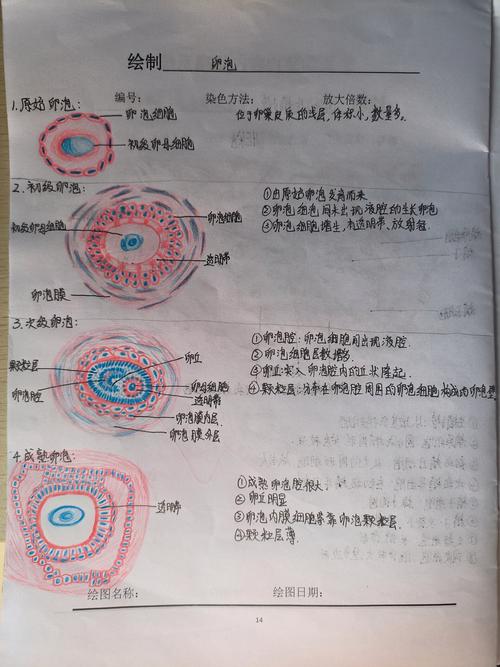 绘制 卵泡
编号： 染色方法： 放大倍数：
1.原始卵泡：
卵泡细胞
初级卵母细胞
位于卵巢皮质的浅层，体积小，数量多。
2.初级卵泡：
初级卵母细胞
卵泡细胞
透明带
卵泡膜
①由原始卵泡发育而来
②卵泡细胞间未出现液腔的生长卵泡
③卵泡细胞增生，有透明带、放射冠
3.次级卵泡：
颗粒层
卵泡腔
卵丘
卵母细胞
透明带
卵泡膜内层
卵泡膜外层
①卵泡腔：卵泡细胞间出现液腔
②卵泡细胞层数增多
③卵丘：突入卵泡腔内的丘状隆起。
④颗粒层：分布在卵泡腔周围的卵泡细胞构成的卵泡壁
4.成熟卵泡：
透明带
①成熟卵泡腔很大
②卵丘明显
③卵泡内膜细胞紧靠卵泡颗粒层。
④颗粒层薄。
绘图名称： 绘图日期：
14